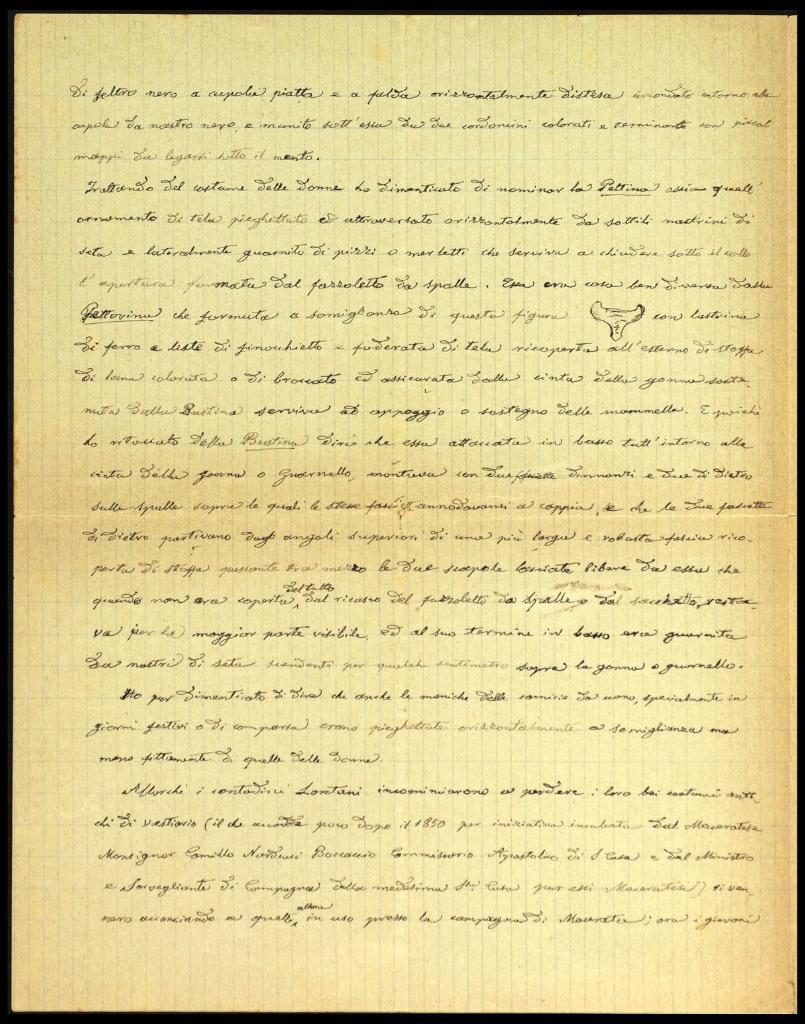 di feltro nero a cupola piatta e a falda orizzontalmente distesa circondato intorno alla
cupola da nastro nero, e munito sott'essa di due cordoncini colorati e terminante con piccoli
mappi da legarsi sotto il mento.
Trattando del costume delle donne ho dimenticato di nominar la Pettina ossia quell'
ornamento di tela pieghettato ed attraversato orizzontalmente da sottili nastrini di
seta e lateralmente guarnito di pizzi o merletti che serviva a chiudere sotto il collo
l'apertura formata dal fazzoletto da spalle. Essa era cosa ben diversa dalla
Pettorina che formata a somiglianza di questa figura con lastrina
di ferro e liste di finocchietto e foderata di tela ricoperta all'esterno di stoffa
di lana colorata o di broccato ed assicurata dalla cinta della gonna soste-
nuta dalla Bustina serviva ad appoggio o sostegno delle mammelle. E poichè
ho ritoccato della Bustina dirò che essa attaccata in basso tutt'intorno alla
cinta della gonna o Guarnello, montava con due fascette dinnanzi e due di dietro
sulle spalle sopra le quali le stesse annodavansi a coppia, e che le due fascette
di dietro partivano dagli angoli superiori di una più larga e robusta fascia rico-
perta di stoffa passante tra mezzo le due scapole lasciate libere da essa che
quando non era coperta del tutto dal ricasco del fazzoletto da spalle o dal sacchetto, resta-
va per la maggior parte visibile, ed al suo termine in basso era guarnita
da nastri di seta scendenti per qualche centimetro sopra la gonna o guarnello.
Ho pur dimenticato di dire che anche le maniche delle camicie da uomo, specialmente in
giorni festivi o di comparsa erano pieghettate orizzontalmente a somiglianza ma
meno fittamente di quelle delle donne.
Allorchè i contadini Loretani incominciarono a perdere i loro bei costumi anti-
chi di vestiario (il che accadde poco dopo il 1850 per iniziativa inculcata dal Maceratese
Monsignor Camillo Narducci Boccaccio Commissario Apostolico di S. Casa e dal Ministro
e Sorvegliante di Campagna della medesima Sta. Casa pur essi Maceratesi) si ven-
nero acconciando a quelli allora in uso presso la campagna di Macerata; ora i giovani